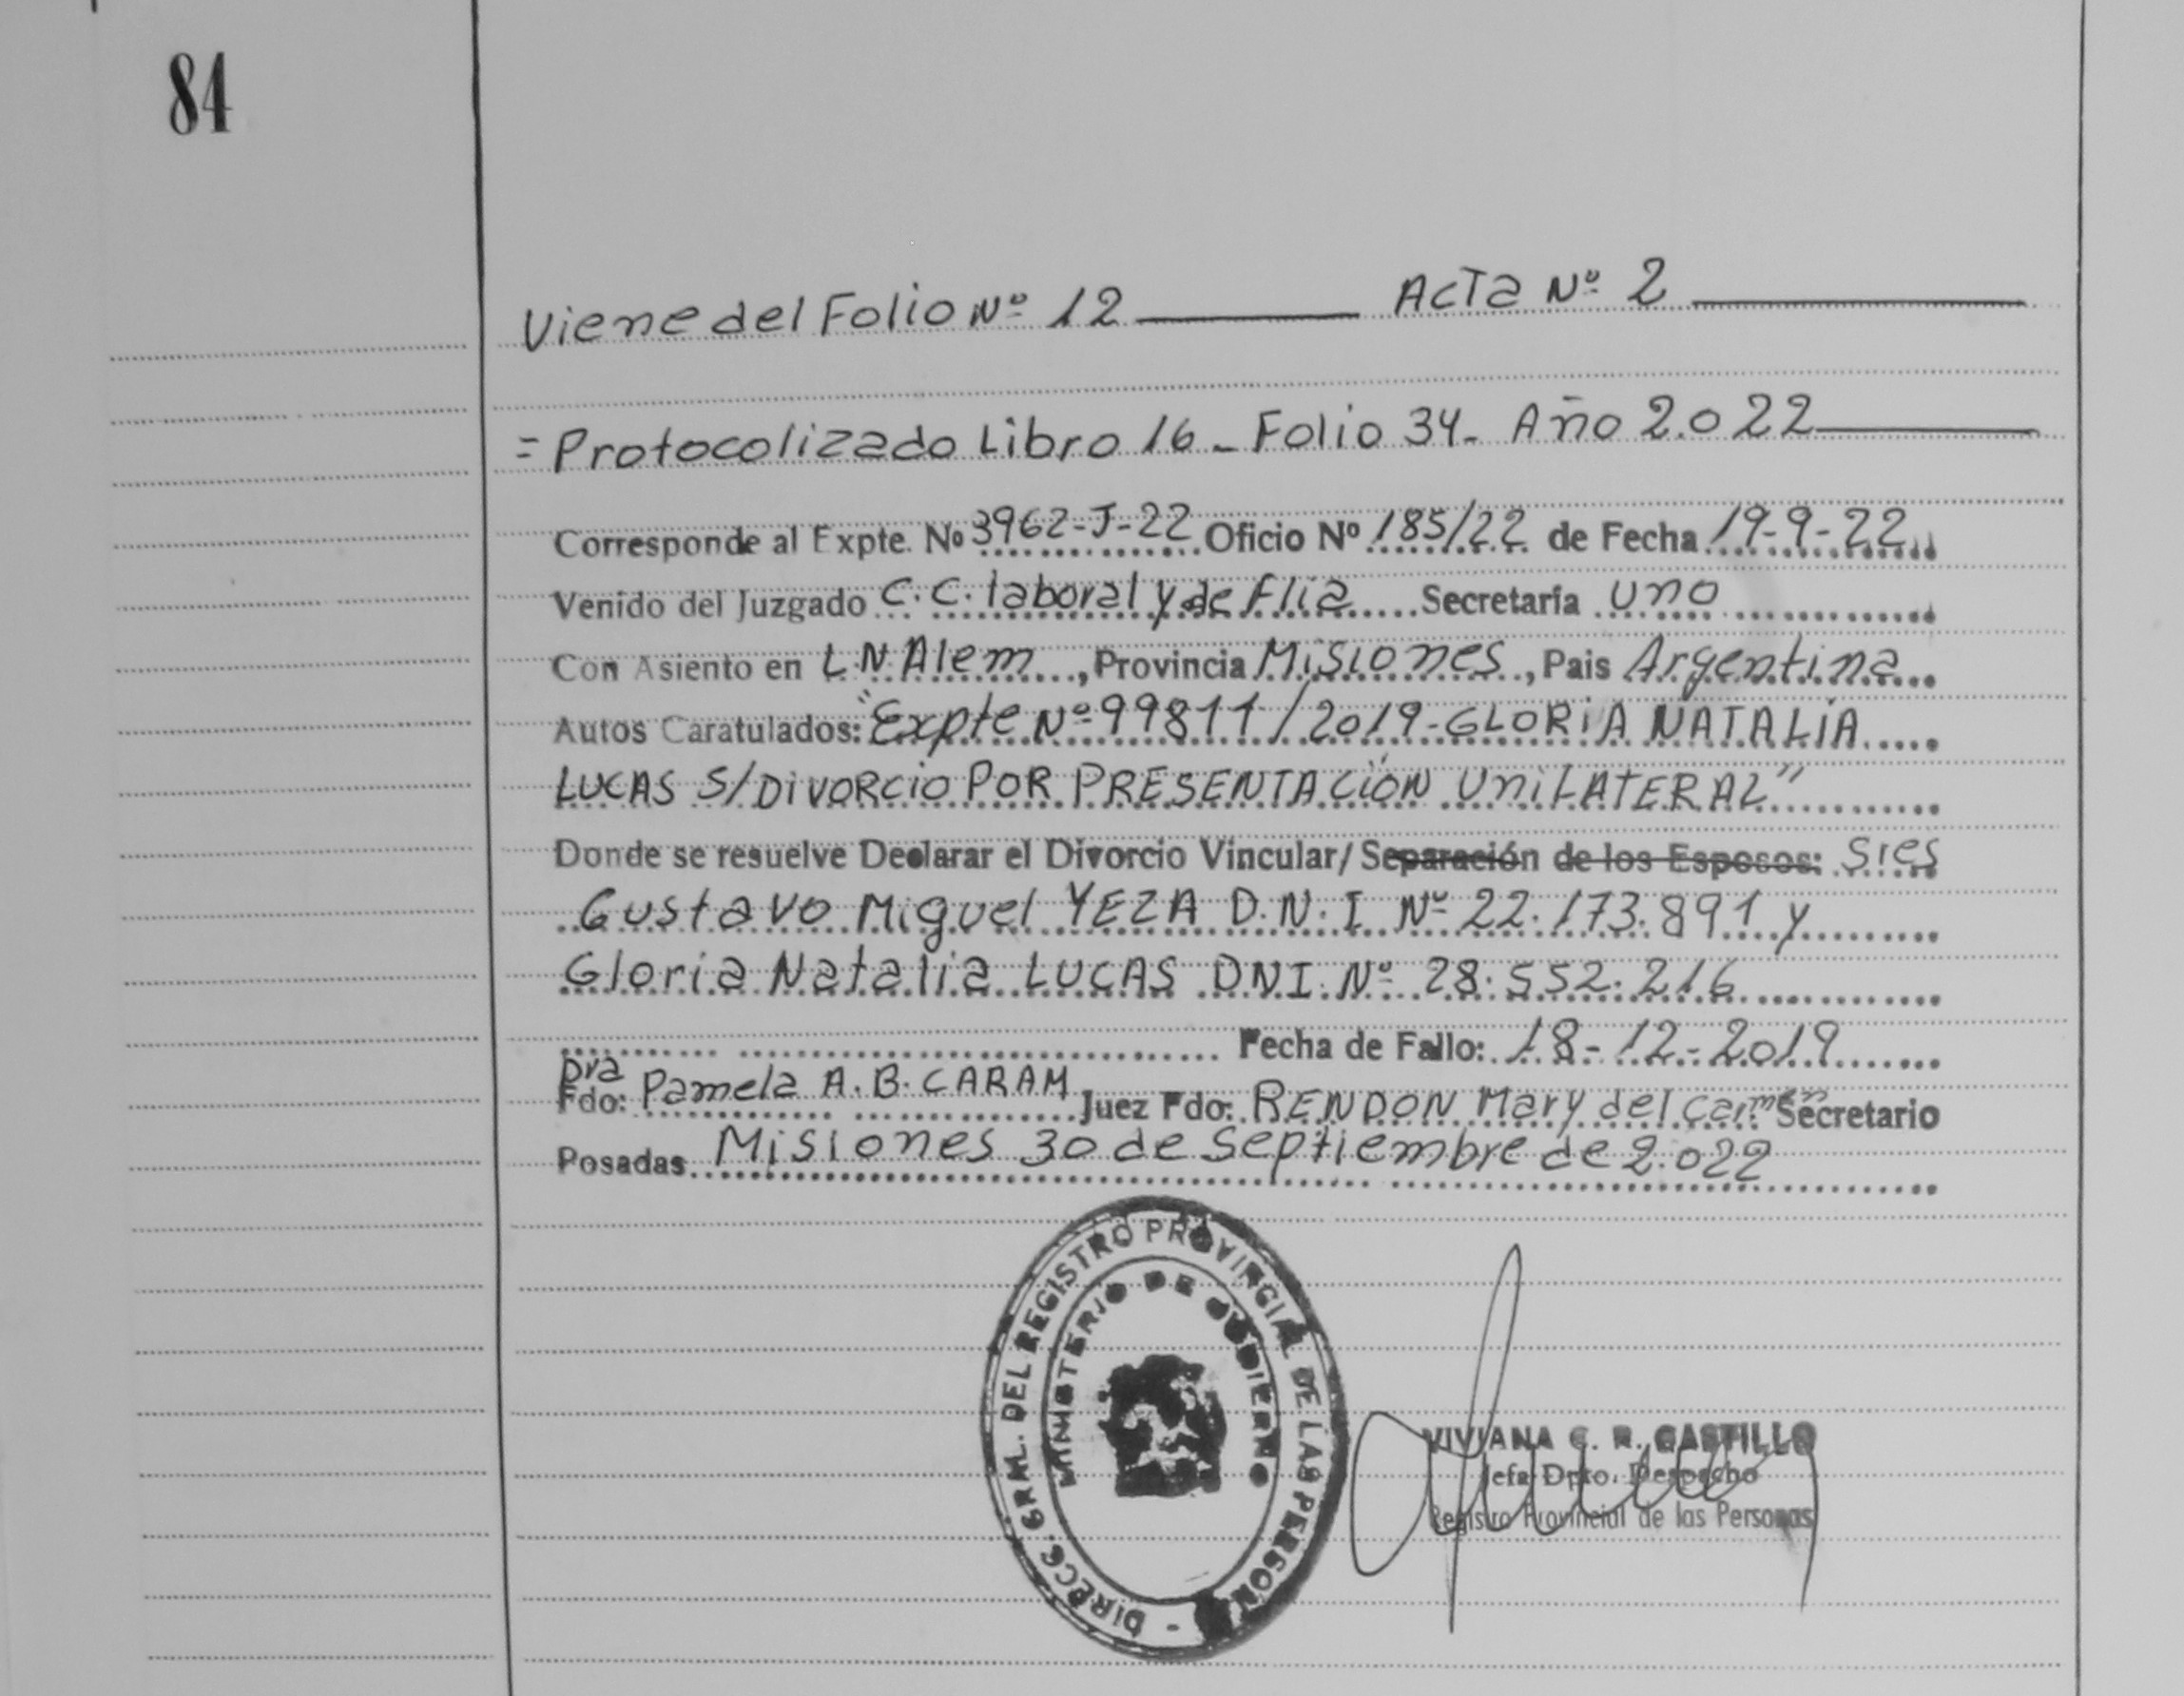 84
Viene del Folio Nº 12 ACTA Nº 2
= Protocolizado Libro 16 - Folio 34 - Año 2.022
Corresponde al Expte. Nº 3962-J-22 Oficio Nº 185/22 de Fecha 19-9-22
Venido del Juzgado C.C. laboral y de Flia Secretaría uno
Con Asiento en L.N. Alem, Provincia Misiones, Pais Argentina
Autos Caratulados: "Expte Nº 99811/2019-GLORIA NATALIA
LUCAS S/DIVORCIO POR PRESENTACIÓN UNILATERAL"
Donde se resuelve Declarar el Divorcio Vincular/ Separación de los Esposos: Sres
Gustavo Miguel YEZA D.N.I. Nº 22.173.891 y
Gloria Natalia LUCAS DNI. Nº 28.552.216
Fecha de Fallo: 18-12-2019
Dra
Fdo: Pamela A.B. CARAM Juez Fdo: RENDON Mary del Carmen Secretario
Posadas Misiones 30 de Septiembre de 2.022
DIRECC. GRAL. DEL REGISTRO PROVINCIAL DE LAS PERSONAS
MINISTERIO DE GOBIERNO
VIVIANA C. R. CASTILLO
Jefa Dpto. Despacho
Registro Provincial de las Personas